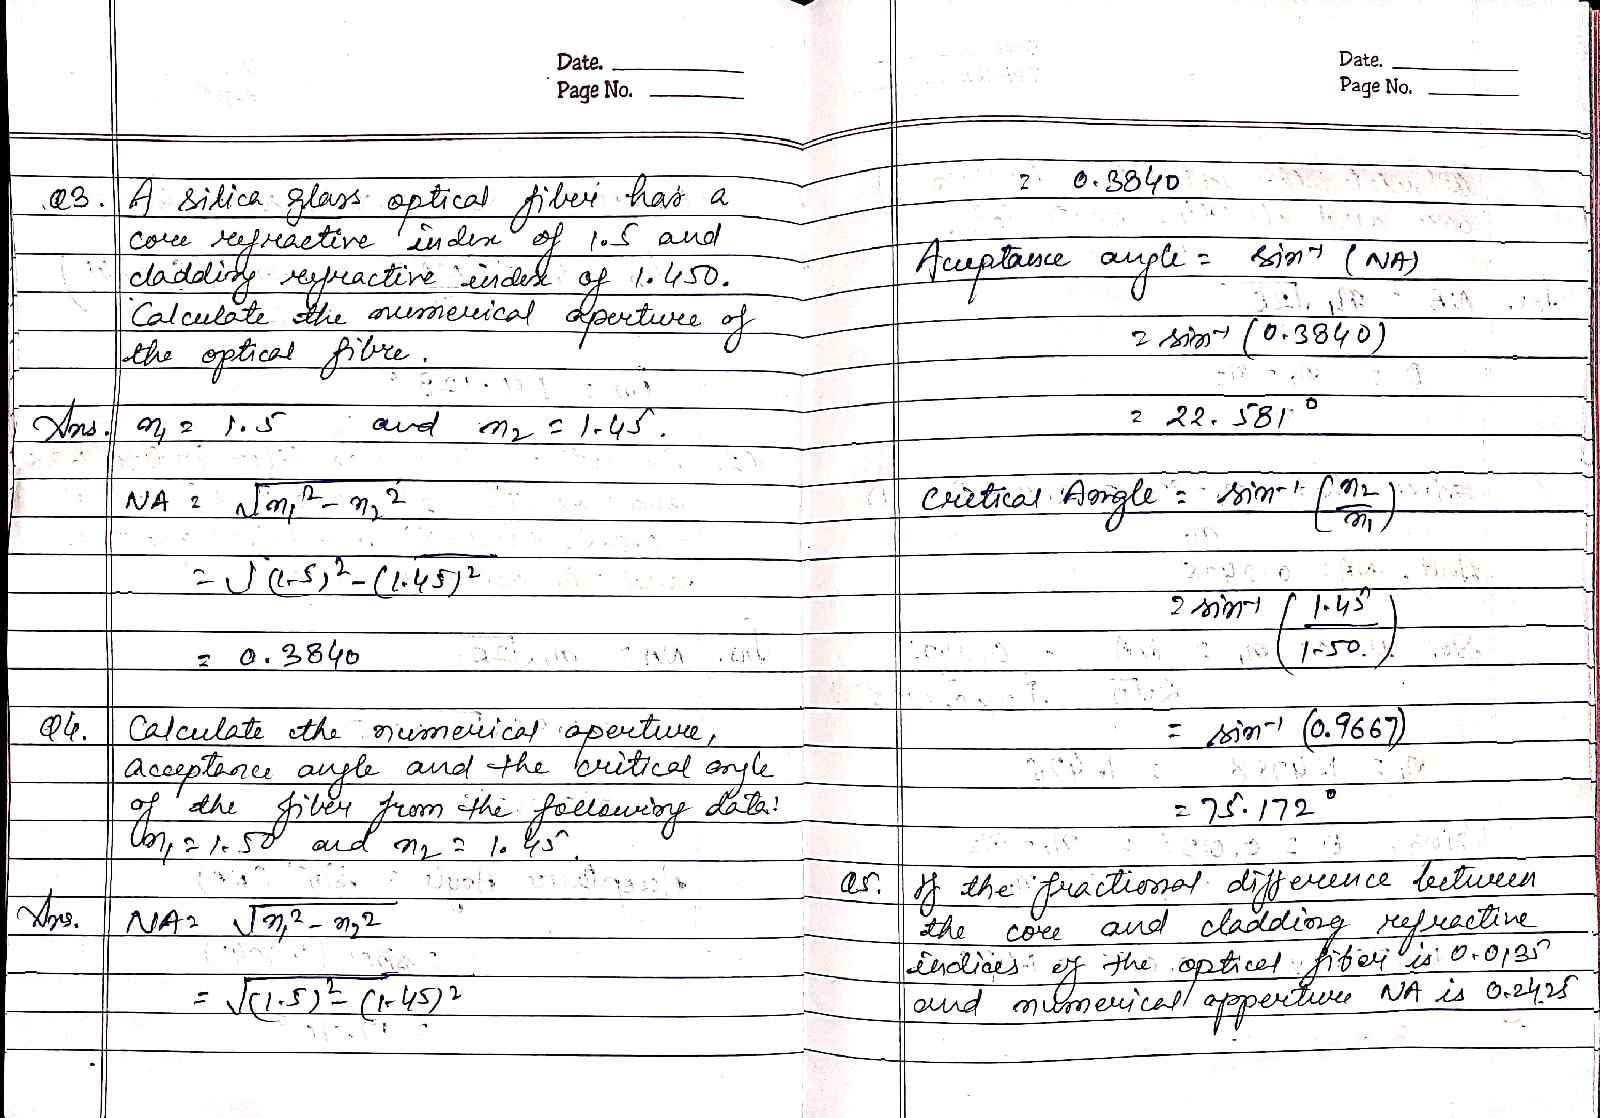 Date.
Page No.
Q3. A silica glass optical fiber has a
core refractive index of 1.5 and
cladding refractive index of 1.450.
Calculate the numerical aperture of
the optical fibre.
Ans. n₁ = 1.5 and n₂ = 1.45.
NA = √n₁² - n₂²
= √(1.5)² - (1.45)²
= 0.3840
Q4. Calculate the numerical aperture,
acceptance angle and the critical angle
of the fiber from the following data:
n₁ = 1.50 and n₂ = 1.45.
Ans. NA = √n₁² - n₂²
= √(1.5)² - (1.45)²
Date.
Page No.
= 0.3840
Acceptance angle = sin⁻¹ (NA)
= sin⁻¹ (0.3840)
= 22.581°
Critical Angle = sin⁻¹ (n₂/n₁)
= sin⁻¹ (1.45/1.50.)
= sin⁻¹ (0.9667)
= 75.172°
Q5. If the fractional difference between
the core and cladding refractive
indices of the optical fiber is 0.0135
and numerical apperture NA is 0.2425